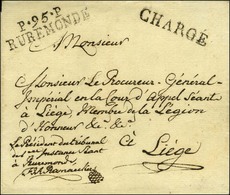 P.95.P
RUREMONDE
CHARGÉ
Monsieur
Monsieur Le Procureur-Général-
Impérial en la Cour d'Appel Séant
à Liège, Membre de la Légion
d'Honneur &c. &c.
Le Président du tribunal
de 1ere Instance Séant
à Ruremonde
à
Liège